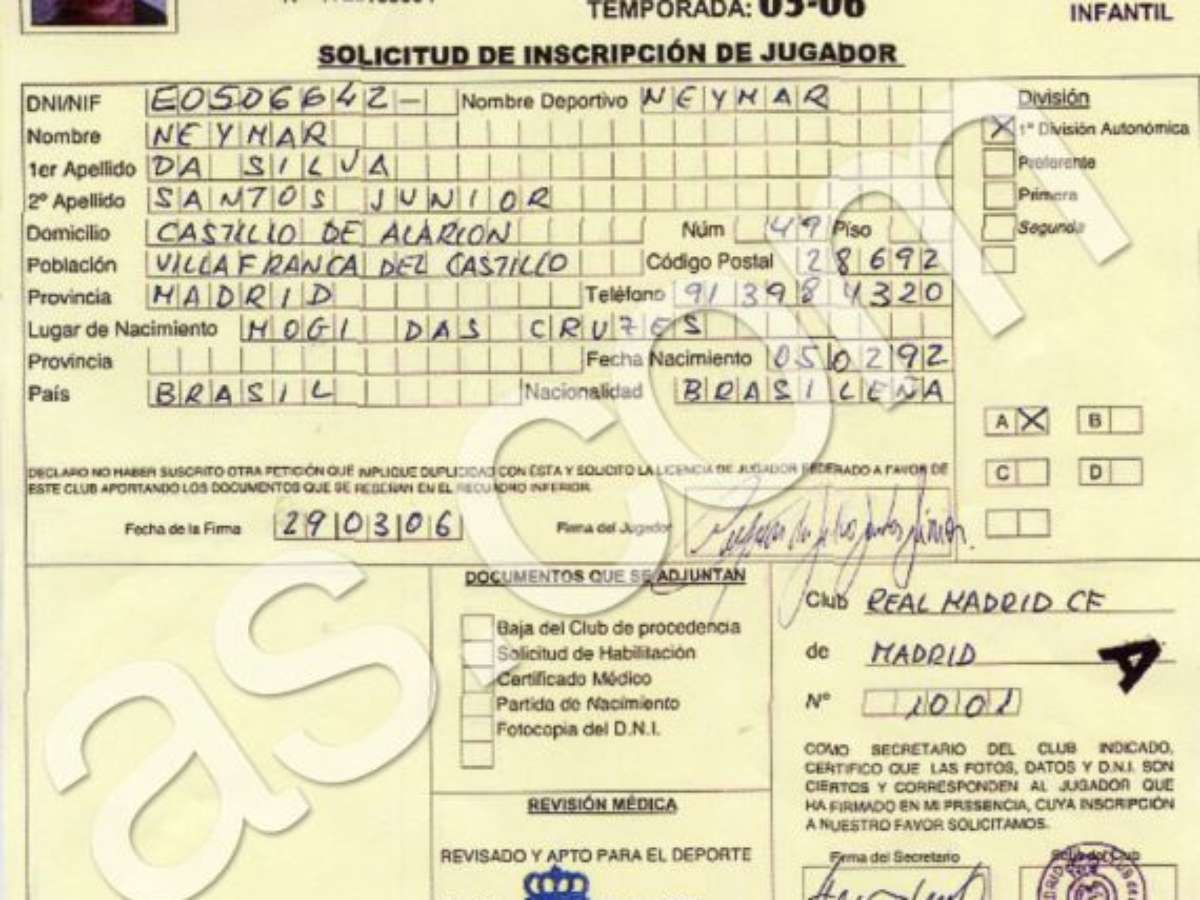 TEMPORADA: 05-06
INFANTIL
SOLICITUD DE INSCRIPCIÓN DE JUGADOR
DNI/NIF E0506642- Nombre Deportivo NEYMAR
Nombre NEYMAR
1er Apellido DA SILVA
2º Apellido SANTOS JUNIOR
Domicilio CASTILLO DE ALARION Núm 49 Piso
Población VILLAFRANCA DEL CASTILLO Código Postal 28692
Provincia MADRID Teléfono 913984320
Lugar de Nacimiento MOGI DAS CRUZES
Provincia Fecha Nacimiento 050292
País BRASIL Nacionalidad BRASILEÑA
División
X 1ª División Autonómica
Preferente
Primera
Segunda
A X B
C D
DECLARO NO HABER SUSCRITO OTRA PETICIÓN QUE IMPLIQUE DUPLICIDAD CON ÉSTA Y SOLICITO LA LICENCIA DE JUGADOR FEDERADO A FAVOR DE
ESTE CLUB APORTANDO LOS DOCUMENTOS QUE SE RESEÑAN EN EL RECUADRO INFERIOR.
Fecha de la Firma 290306 Firma del Jugador
DOCUMENTOS QUE SE ADJUNTAN
Baja del Club de procedencia
Solicitud de Habilitación
Certificado Médico
Partida de Nacimiento
Fotocopia del D.N.I.
REVISIÓN MÉDICA
REVISADO Y APTO PARA EL DEPORTE
Club REAL MADRID CF
de MADRID
A
Nº 1001
COMO SECRETARIO DEL CLUB INDICADO,
CERTIFICO QUE LAS FOTOS, DATOS Y D.N.I. SON
CIERTOS Y CORRESPONDEN AL JUGADOR QUE
HA FIRMADO EN MI PRESENCIA, CUYA INSCRIPCIÓN
A NUESTRO FAVOR SOLICITAMOS.
Firma del Secretario Sello del Club
as.com